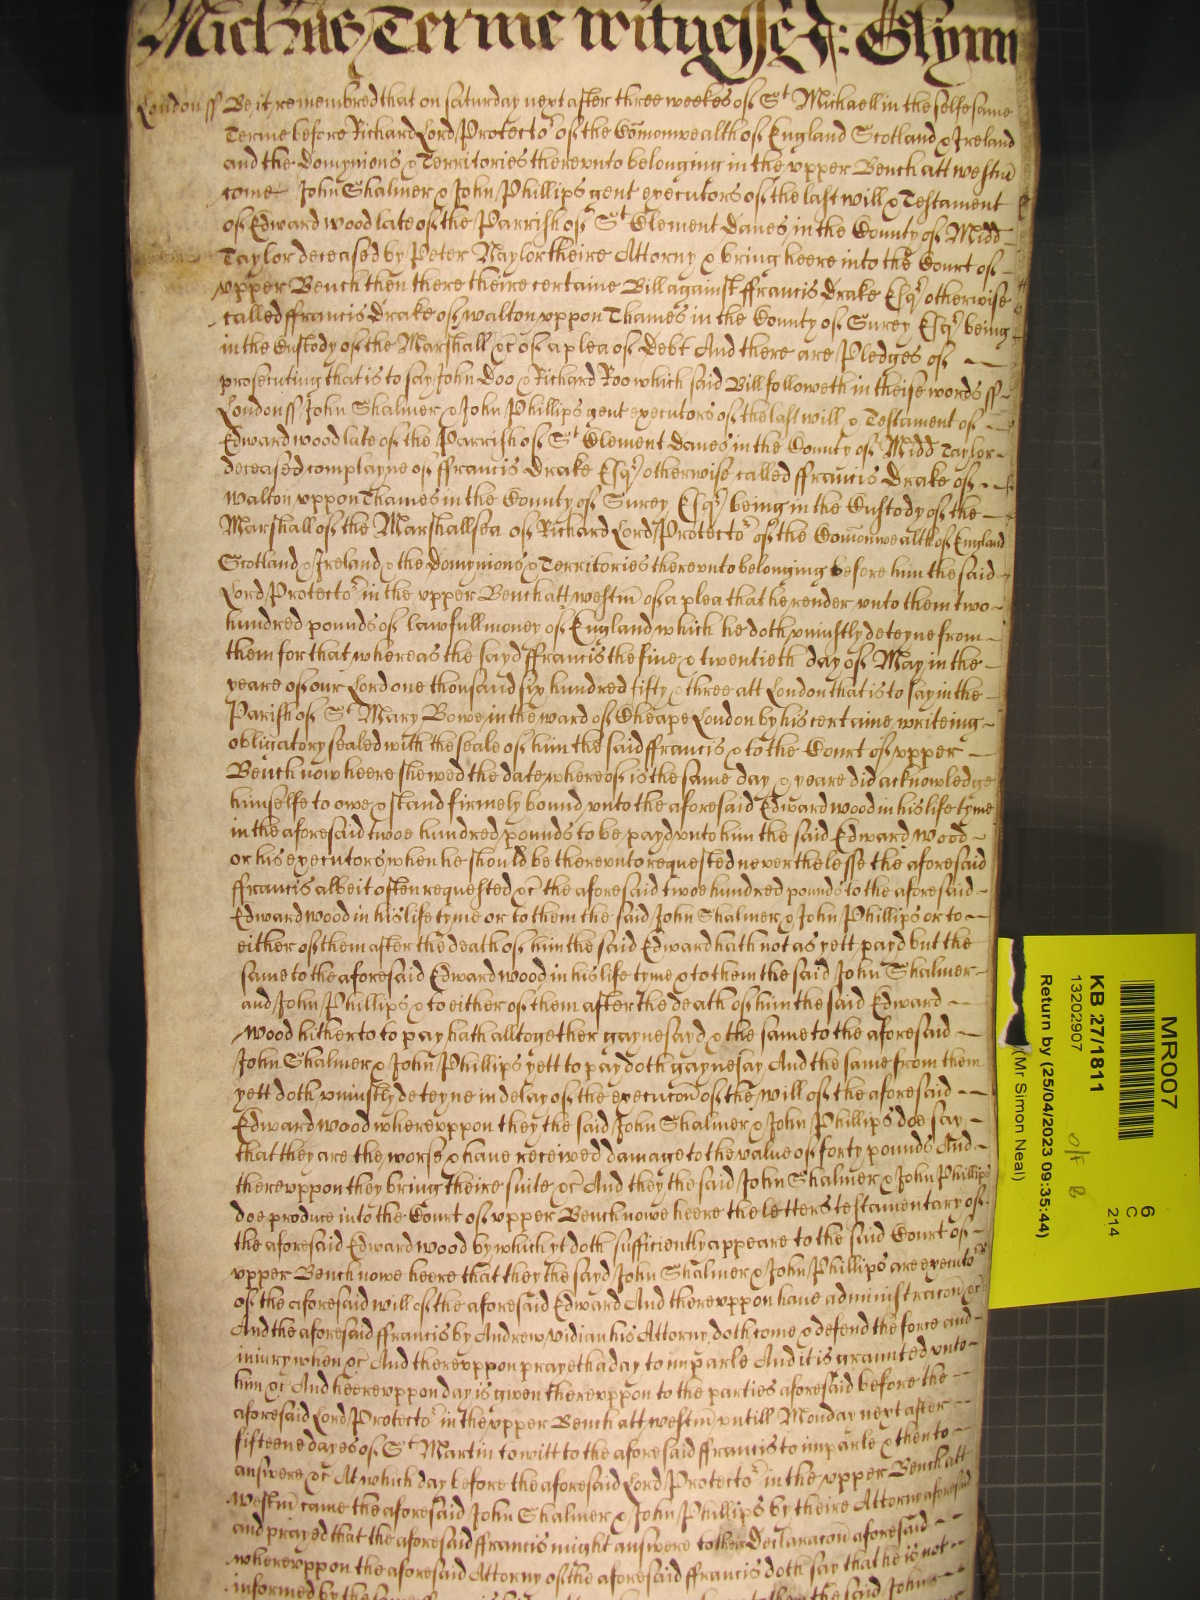 Michás Terme witnesse J: Glynn
London ss Be it remembred that on saturday next after three weekes of St Michaell in the selfe same
Terme before Richard Lord Protector of the Comonwealth of England Scotland & Ireland
and the Domynions & Territories therevnto belonging in the vpper Bench att westm
come John Skalmer & John Phillips gent executors of the last will & Testament
of Edward wood late of the Parrish of St Clement Danes in the County of Midd
Taylor deceased by Peter Naylor theire Attorny & bring heere into the Court of
vpper Bench then there theire certaine Bill against ffrancis Drake Esqr otherwise
called ffrancis Drake of walton vppon Thames in the County of Surey Esqr being
in the Custody of the Marshall &c of a plea of Debt And there are Pledges of
prosecuting that is to say John Doo & Richard Roo which said Bill followeth in theise words ss
London ss John Skalmer & John Phillips gent executors of the last will & Testament of
Edward wood late of the Parrish of St Clement Danes in the County of Midd Taylor
deceased complayne of ffrancis Drake Esqr otherwise called ffrancis Drake of
walton vppon Thames in the County of Surey Esqr being in the Custody of the
Marshall of the Marshallsea of Richard Lord Protector of the Comonwealth of England
Scotland & Ireland & the Domynions & Territories therevnto belonging before him the said
Lord Protector in the vpper Bench att westm of a plea that he render vnto them two
hundred pounds of lawfull money of England which he doth vniustly deteyne from
them for that whereas the sayd ffrancis the five & twentieth day of May in the
yeare of our Lord one thousand six hundred fifty & three att London that is to say in the
Parish of St Mary Bowe in the ward of Cheape London by his certaine writeing
obligatory sealed with the seale of him the said ffrancis & to the Court of vpper
Bench now heere shewed the date whereof is the same day & yeare did acknowledge
himselfe to owe & stand firmely bound vnto the aforesaid Edward wood in his life tyme
in the aforesaid twoe hundred pounds to be payd vnto him the said Edward wood
or his executors when he should be therevnto requested neverthelesse the aforesaid
ffrancis albeit often requested &c the aforesaid twoe hundred pounds to the aforesaid
Edward wood in his life tyme or to them the said John Skalmer & John Phillips or to
either of them after the death of him the said Edward hath not as yett payd but the
same to the aforesaid Edward wood in his life tyme & to them the said John Skalmer
and John Phillips & to either of them after the death of him the said Edward
wood hitherto to pay hath alltogether gaynesayd & the same to the aforesaid
John Skalmer & John Phillips yett to pay doth gaynesay And the same from them
yett doth vniustly deteyne in delay of the execucon of the will of the aforesaid
Edward wood wherevppon they the said John Skalmer & John Phillips doe say
that they are the worse & have received damage to the value of forty pounds And
therevppon they bring theire suite &c And they the said John Skalmer & John Phillips
doe produce into the Court of vpper Bench nowe heere the letters testamentary of
the aforesaid Edward wood by which yt doth sufficiently appeare to the said Court of
vpper Bench nowe heere that they the sayd John Skalmer & John Phillips are executors
of the aforesaid will of the aforesaid Edward And therevppon have administracon &c
And the aforesaid ffrancis by Andrew Vidian his Attorny doth come & defend the force and
iniury when &c And therevppon prayeth a day to imparle And it is graunted vnto
him &c And heerevppon day is given therevppon to the parties aforesaid before the
aforesaid Lord Protector in the vpper Bench att westm vntill Monday next after
fifteene dayes of St Martin to witt to the aforesaid ffrancis to imparle & then to
answere &c At which day before the aforesaid Lord Protector in the vpper Bench att
westm came the aforesaid John Skalmer & John Phillips by theire Attorny aforesaid
and prayed that the aforesaid ffrancis might answere to their Declaracon aforesaid
wherevppon the aforesaid Attorny of the aforesaid ffrancis doth say that he is not
informed by the same the said John
MR007
6
C
214
KB 27/1811
13202907
O/F B
Return by (25/04/2023 09:35:44)
(Mr Simon Neal)